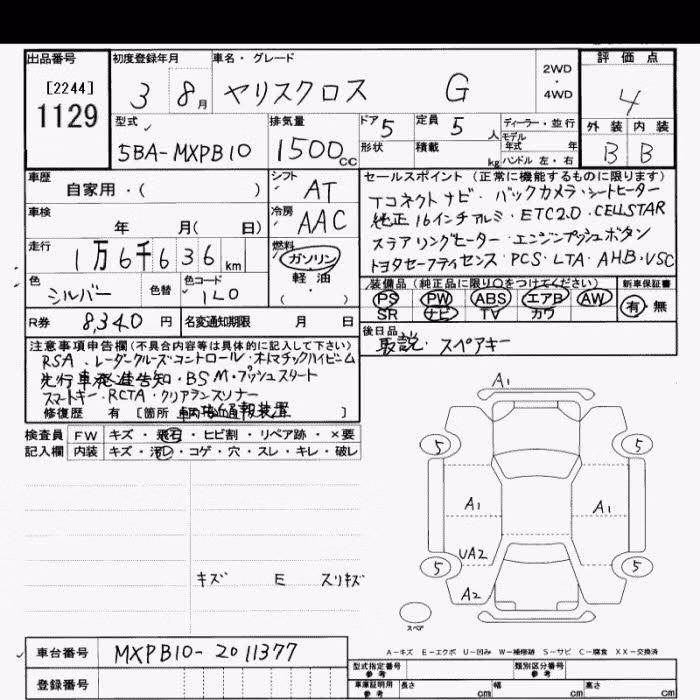 出品番号
[2244]
1129
初度登録年月
3 8月
車名・グレード
ヤリスクロス G
2WD
・
4WD
評価点
4
外装 内装
B B
型式
5BA-MXPB10
排気量
1500cc
ドア 5
定員 5人
ディーラー・並行
モデル年式 年
形状
積載 kg
ハンドル 左・右
車歴
自家用・( )
シフト AT
車検
年 月( 日)
冷房 AAC
走行
1万6千636km
燃料
ガソリン
・
軽油
( )
色
シルバー
色替
色コード
1L0
R券 8,340円
名変通知期限 月 日
セールスポイント (正常に機能するものに限ります)
Tコネクトナビ・バックカメラ・シートヒーター
純正16インチアルミ・ETC2.0・CELLSTAR
ステアリングヒーター・エンジンプッシュボタン
トヨタセーフティセンス・PCS・LTA・AHB・VSC
装備品 (純正品に限り○をつけてください)
PS PW ABS エアB AW
SR ナビ TV カワ
新車保証書
有・無
後日品
取説・スペアキー
注意事項申告欄(不具合内容等は具体的に記入して下さい)
RSA、レーダークルーズコントロール・オートマチックハイビーム
先行車発進告知・BSM・プッシュスタート
スマートキー・RCTA・クリアランスソナー
修復歴 有 [箇所 車両接近通報装置 ]
検査員
記入欄
FW キズ・飛石・ヒビ割・リペア跡・×要
内装 キズ・汚レ・コゲ・穴・スレ・キレ・破レ
キズ E スリキズ
A1
5 5
A1 A1
UA2
5 5
A2
スペア
A-キズ E-エクボ U-凹み W-補修跡 S-サビ C-腐食 XX-交換済
車台番号 MXPB10-2011377
登録番号
型式指定番号
参考
類別区分番号
参考
車庫証明用
参考
長さ cm 幅 cm 高さ cm